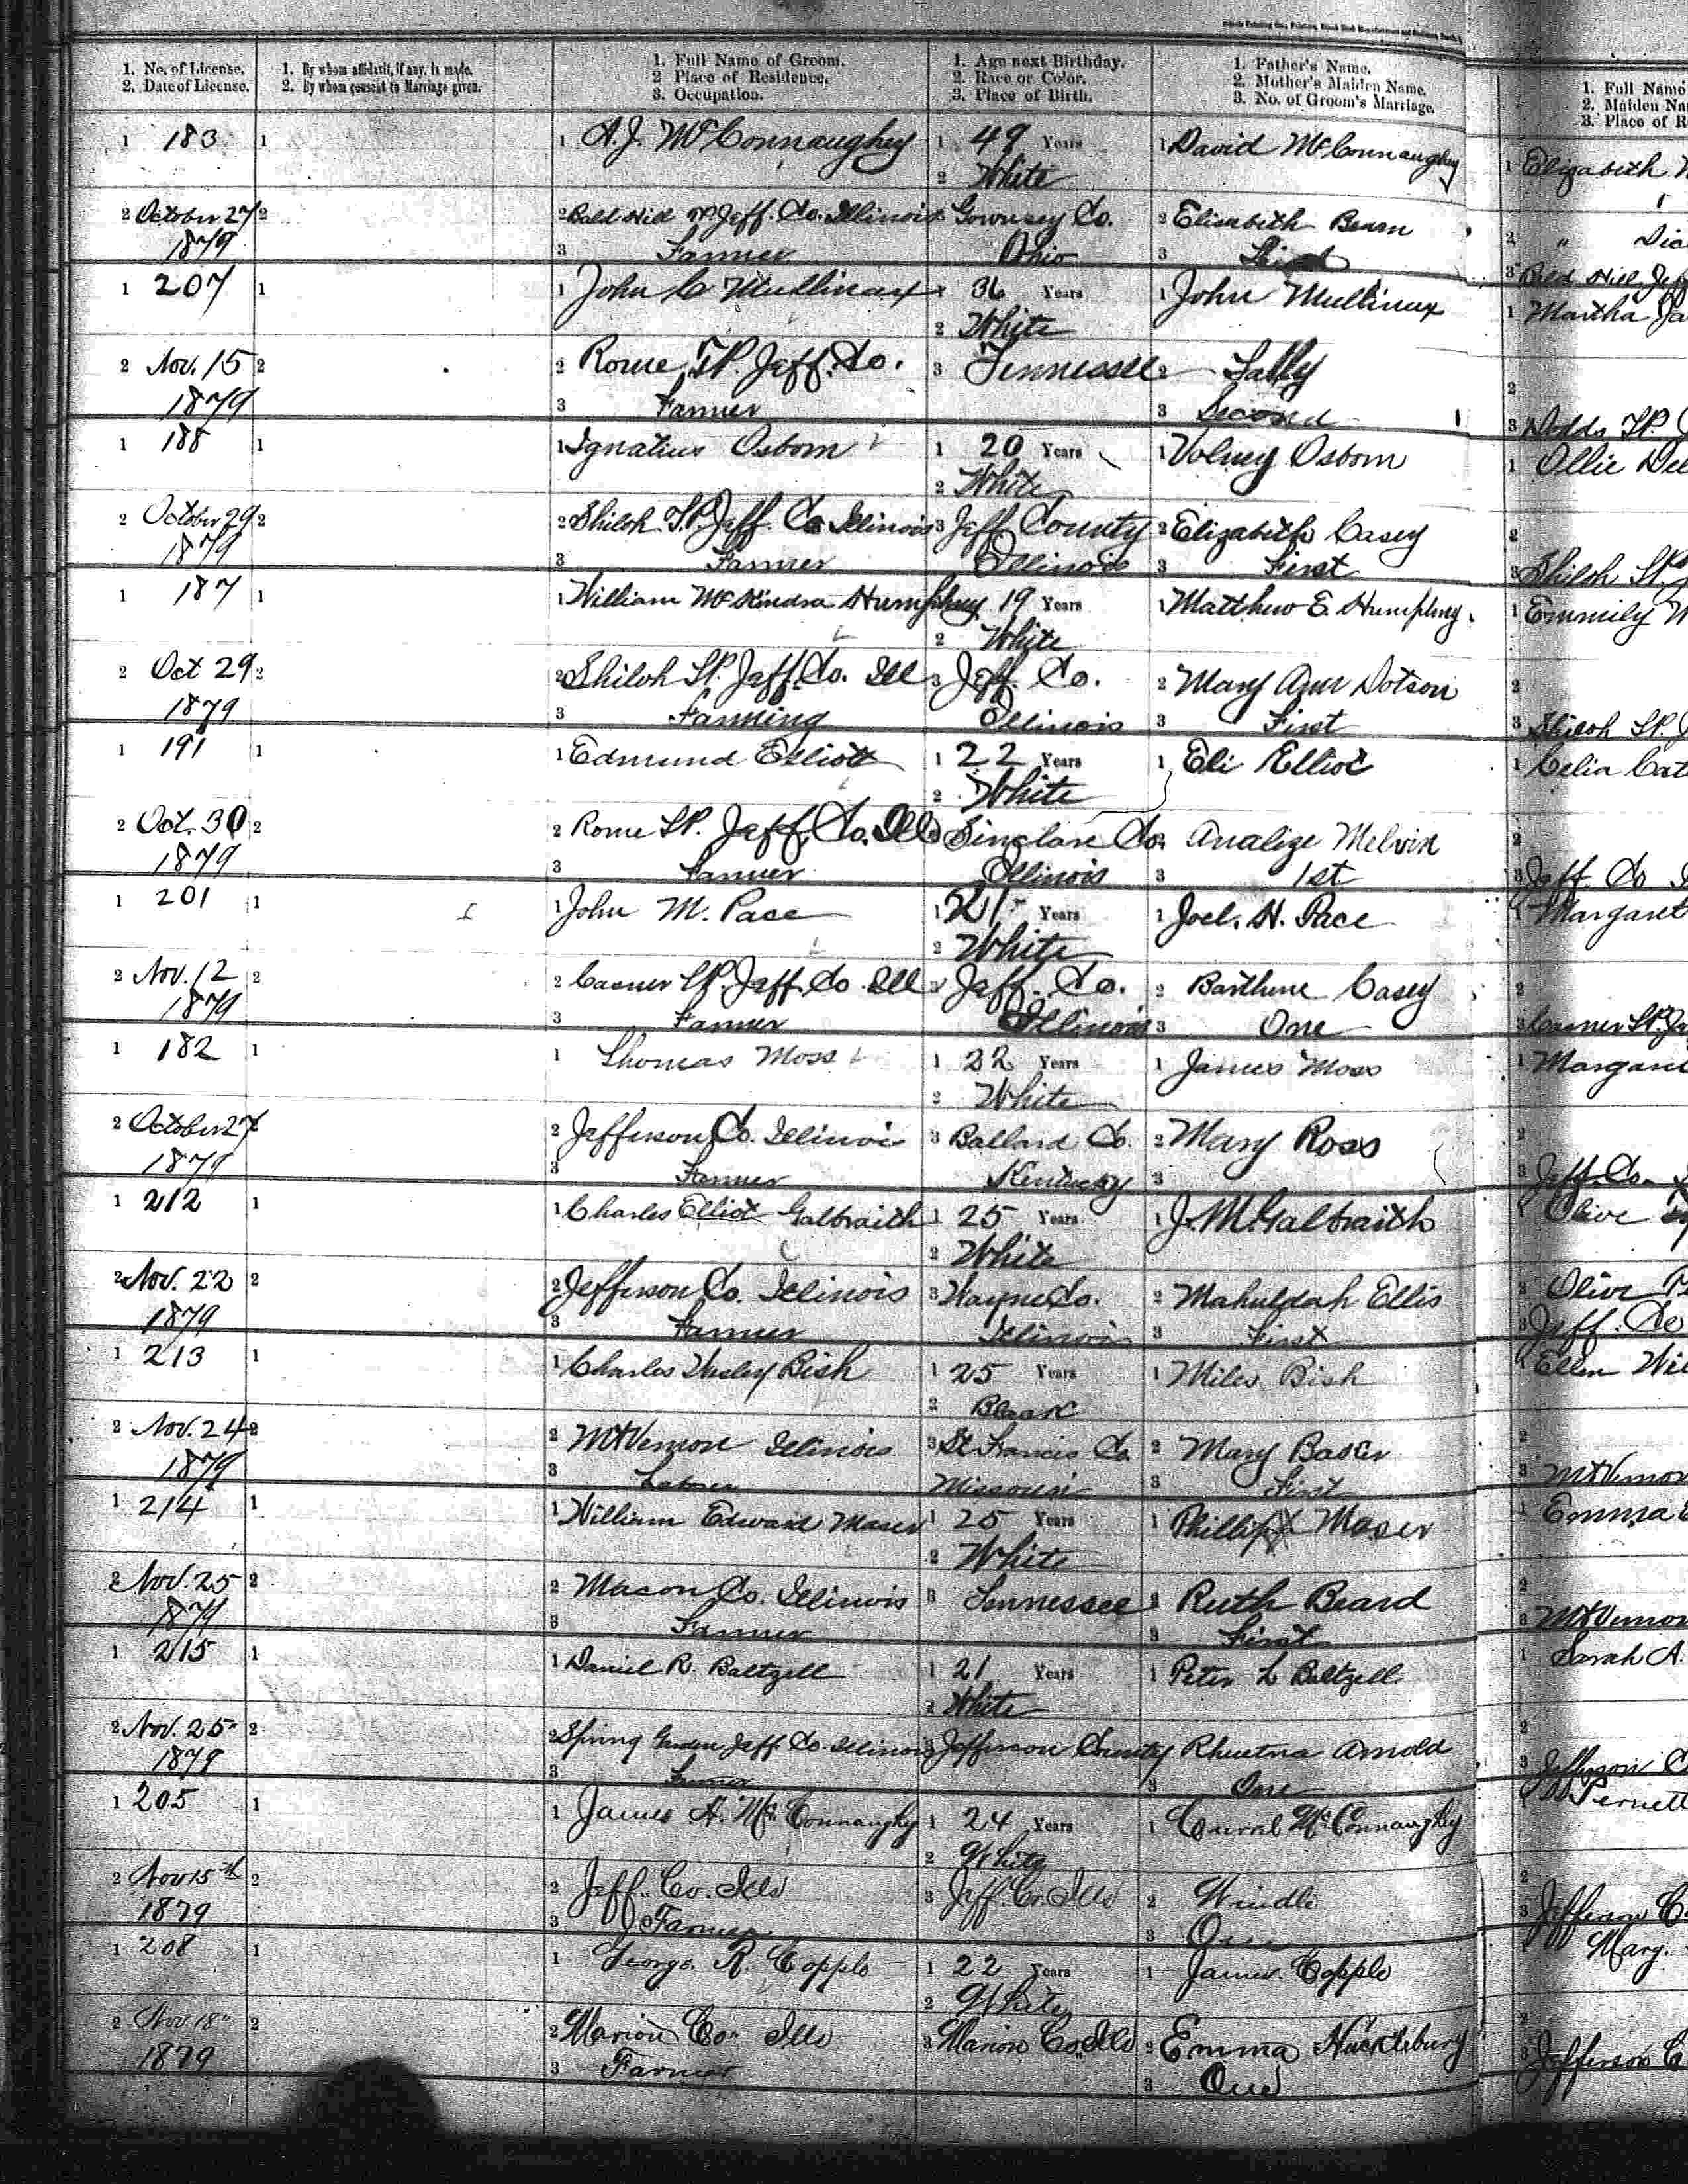 1. No. of License.
2. Date of License.
1. By whom affidavit, if any, is made.
2. By whom consent to Marriage given.
1. Full Name of Groom.
2 Place of Residence.
3. Occupation.
1. Age next Birthday.
2. Race or Color.
3. Place of Birth.
1. Father's Name.
2. Mother's Maiden Name.
3. No. of Groom's Marriage.
1. Full Name
2. Maiden Na
3. Place of R
1 183 1 1 A. J. McConnaughey 1 49 Years 1 David McConnaughey 1 Elizabeth
2 White
2 October 27 2 2 Bald Hill TP. Jeff. Co. Illinois Gownsey Co. 2 Elisabeth Beam 2 "
1879 3 Farmer Ohio 3 3 Bald Hill Jeff
1 207 1 1 John C Mullinax 36 Years 1 John Mullinax 1 Martha Ja
2 White
2 Nov. 15 2 2 Rome TP. Jeff. Co. 3 Tennessee 2 Sally 2
1879 3 Farmer 3 Second 3 Dodds TP. J
1 188 1 1 Ignatius Osborn 1 20 Years 1 Volney Osborn 1 Ollie
2 White
2 October 29 2 2 Shiloh TP. Jeff. Co Illinois 3 Jeff County 2 Elizabeth Casey 2
1879 3 Farmer Illinois 3 First 3 Shiloh TP.
1 187 1 1 William McKindra Humphrey 19 Years 1 Matthew E. Humphrey. 1 Emmily
2 White
2 Oct 29 2 2 Shiloh TP. Jeff. Co. Ill 3 Jeff. Co. 2 Mary Ann Dotson 2
1879 3 Farming Illinois 3 First 3 Shiloh TP. J
1 191 1 1 Edmund Elliott 1 22 Years 1 Eli Elliot 1 Celia
2 White
2 Oct. 30 2 2 Rome TP. Jeff. Co. Ills Sinclare Co. Analize Melvin 2
1879 3 Farmer Illinois 3 1st 3 Jeff. Co
1 201 1 1 John M. Pace 1 21 Years 1 Joel. H. Pace 1 Margaret
2 White
2 Nov. 12 2 2 Casner TP. Jeff. Co. Ill Jeff. Co. 2 Barthine Casey 2
1879 3 Farmer Illinois 3 One 3 Casner TP. Je
1 182 1 1 Thomas Moss 1 22 Years 1 James Moss 1 Margaret
2 White
2 October 27 2 Jefferson Co. Illinoi 3 Ballard Co. 2 Mary Ross 2
1879 3 Farmer Kentucky 3 3 Jeff. Co.
1 212 1 1 Charles Elliot Galbraith 1 25 Years 1 J. M. Galbraith 1 Olive
2 White
2 Nov. 22 2 2 Jefferson Co. Illinois 3 Wayne Co. 2 Mahuldah Ellis 2 Olive
1879 3 Farmer Illinois 3 First 3 Jeff. Co
1 213 1 1 Charles Wesley Bish 1 25 Years 1 Miles Bish 1 Ellen
2 Black
2 Nov. 24 2 2 Mt Vernon Illinois 3 St Francis Co 2 Mary Baker 2
1879 3 Laborer Missouri 3 First 3 Mt Vernon
1 214 1 1 William Edward Maser 1 25 Years 1 Phillip Moser 1 Emma E
2 White
2 Nov. 25 2 2 Macon Co. Illinois 3 Tennessee 2 Ruth Beard 2
1879 3 Farmer 3 First 3 Mt Vernon
1 215 1 1 Daniel R. Baltzell 1 21 Years 1 Peter L Baltzell 1 Sarah A.
2 White
2 Nov. 25 2 2 Spring Garden Jeff. Co. Illinois Jefferson County Rhuetna Arnold 2
1879 3 Farmer 3 One 3 Jefferson C
1 205 1 1 James H. McConnaughy 1 24 Years 1 McConnaughy 1
2 White
2 Nov 15th 2 2 Jeff. Co. Ills 3 Jeff. Co. Ills 2 Windle 2
1879 3 Farmer 3 One 3 Jefferson C
1 208 1 1 George. R. Copple 1 22 Years 1 James. Copple 1 Mary.
2 White
2 Nov 18" 2 2 Marion Co. Ills 3 Marion Co. Ills 2 Emma Hucklebury 2
1879 3 Farmer 3 One 3 Jefferson C